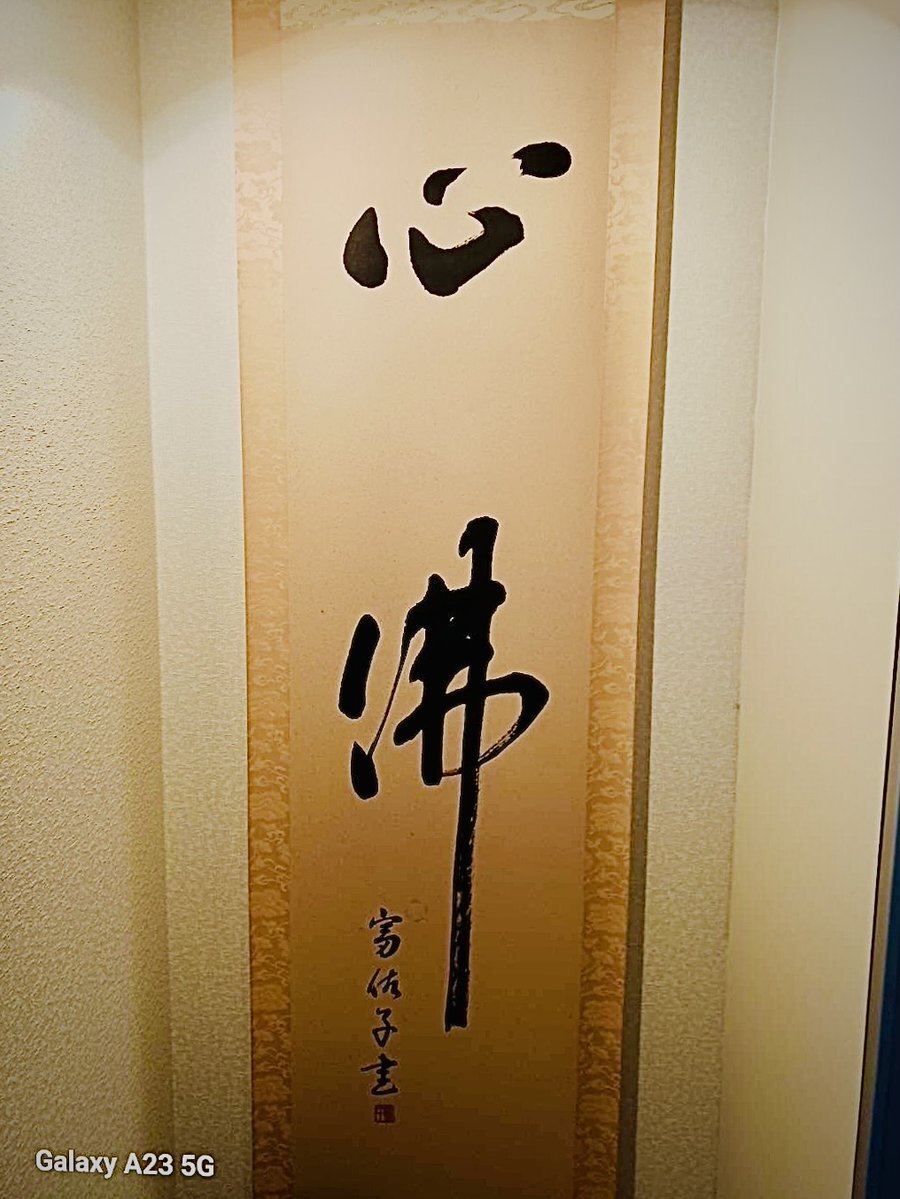 心佛
富佑子書
Galaxy A23 5G